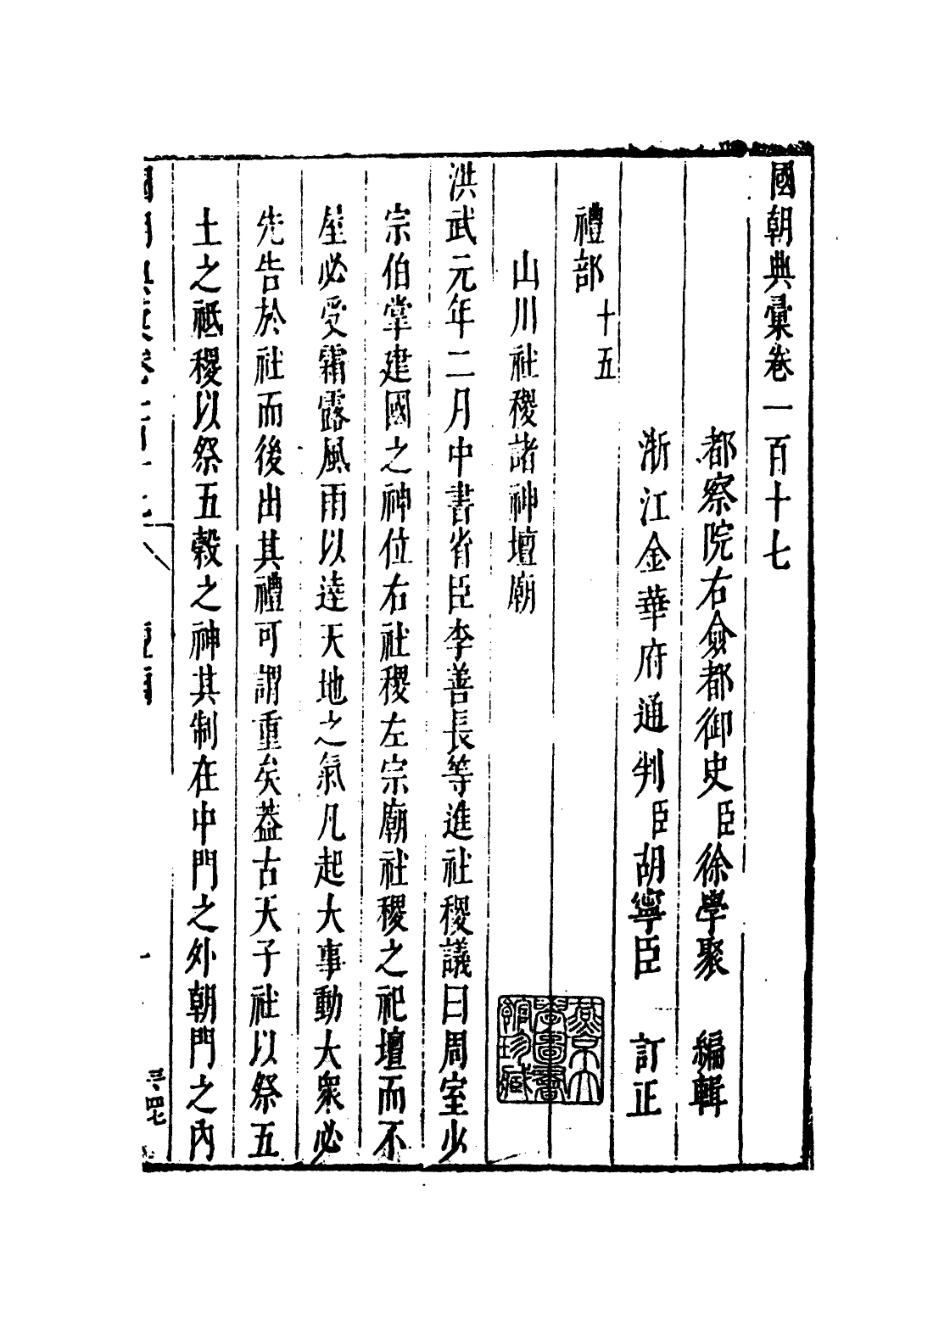 國朝典彙卷一百十七
都察院右僉都御史臣徐學聚 編輯
浙江金華府通判臣胡寧臣 訂正
禮部十五
山川社稷諸神壇廟
洪武元年二月中書省臣李善長等進社稷議曰周室少
宗伯掌建國之神位右社稷左宗廟社稷之祀壇而不
屋必受霜露風雨以達天地之氣凡起大事動大衆必
先告於社而後出其禮可謂重矣葢古天子社以祭五
土之祗稷以祭五穀之神其制在中門之外朝門之內
國朝典彙卷一百十七 壇廟 一
燕京大學圖書館珍藏